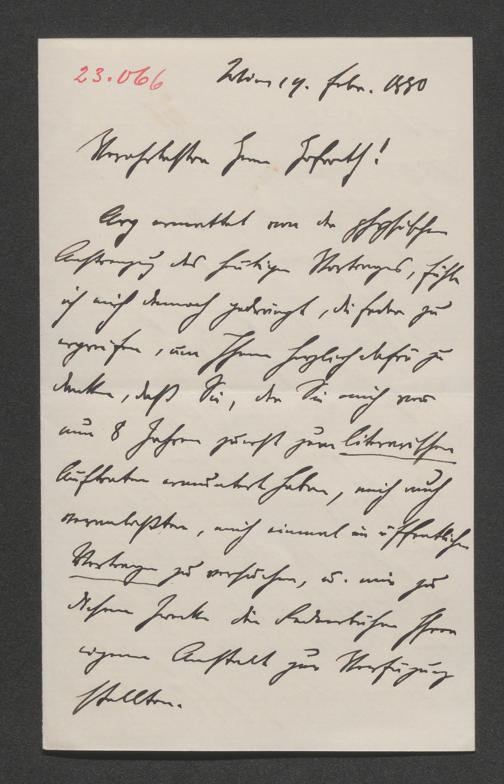 23.066
Wien 19. Febr. 1880
Verehrtester Herr Hofrath!
Arg ermattet von der physischen
Anstrengung des heutigen Vortrages, fühle
ich mich dennoch gedrängt, die Feder zu
ergreifen, um Ihnen herzlich dafür zu
danken, daß Sie, der Sie mich vor
nun 8 Jahren zuerst zum literarischen
Auftreten ermuntert haben, mich auch
veranlaßten, mich einmal in öffentlichen
Vorträgen zu versuchen, u. mir zu
diesem Zwecke die Rednerbühne Ihrer
eigenen Anstalt zur Verfügung
stellten.